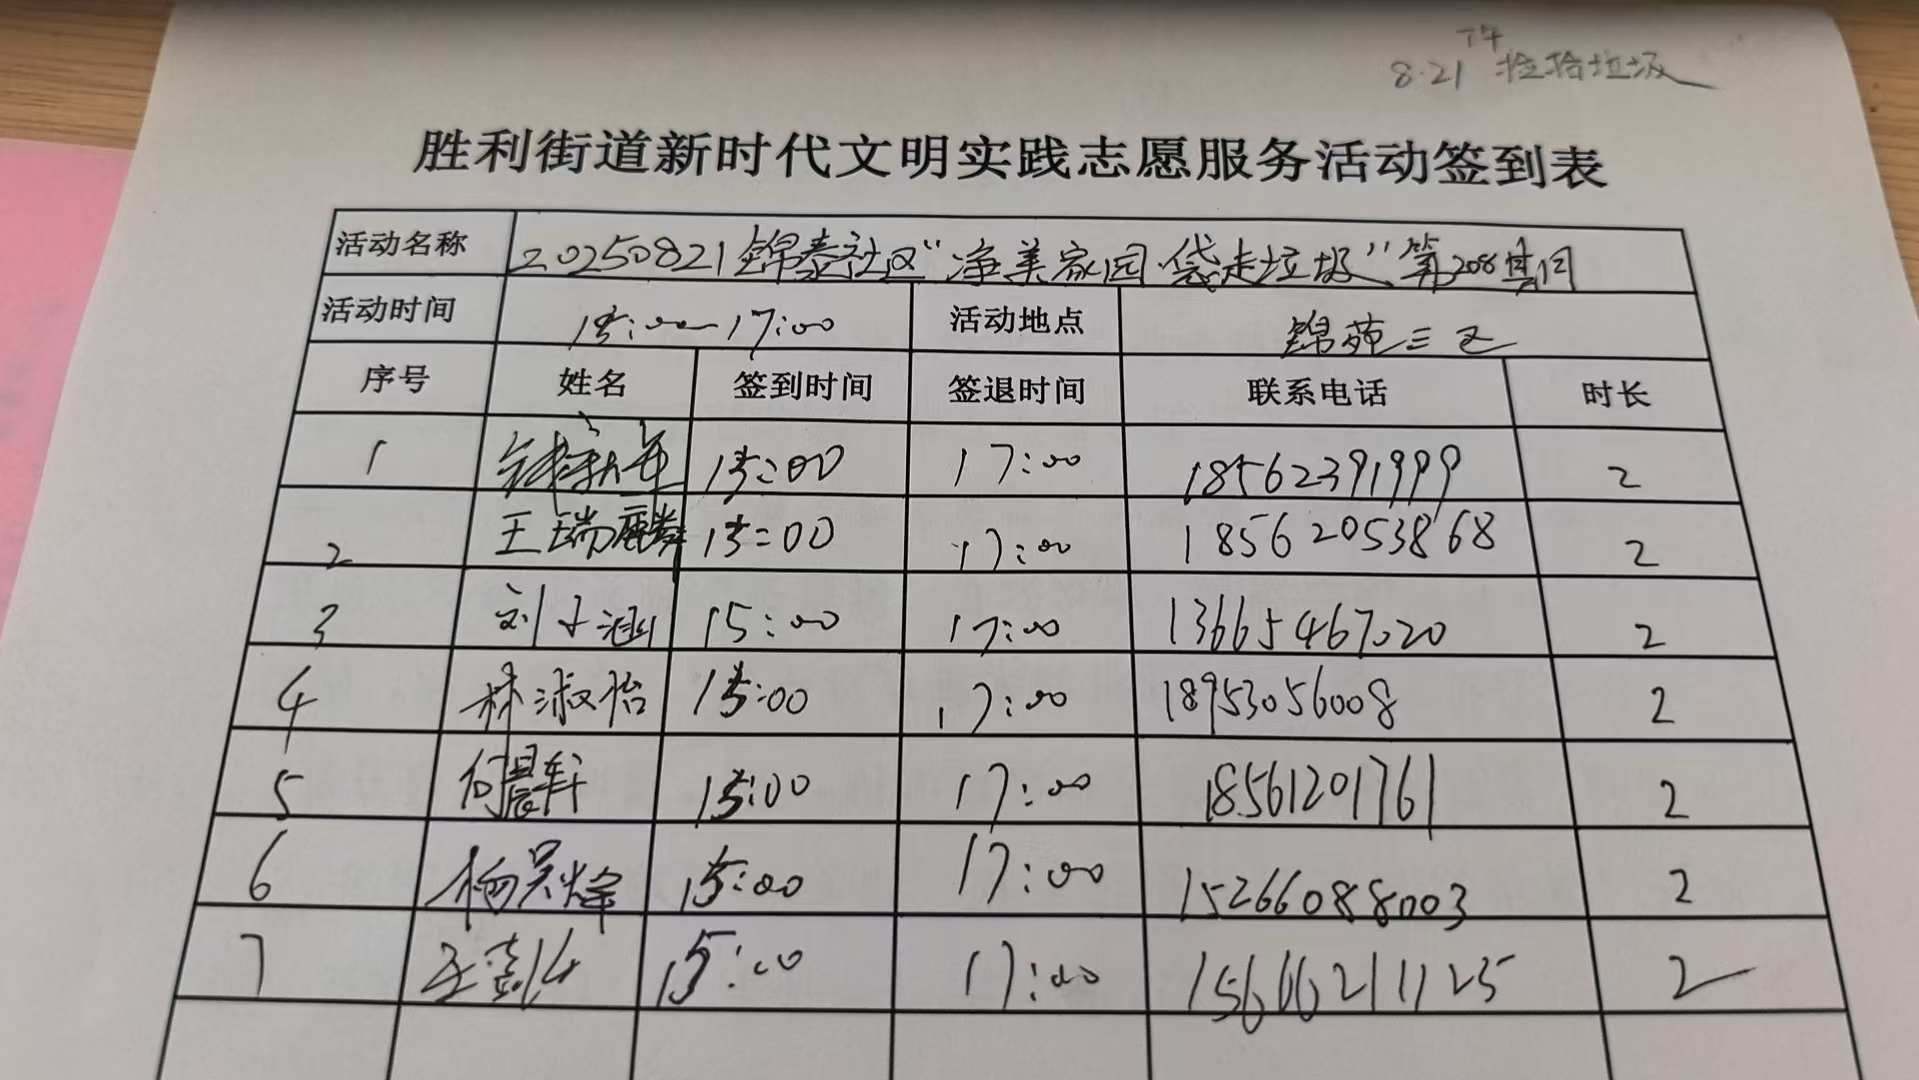 下午
8.21 捡拾垃圾
胜利街道新时代文明实践志愿服务活动签到表
活动名称 20250821锦泰社区“净美家园 袋走垃圾”第208期
活动时间 15:00—17:00 活动地点 锦苑三区
序号 姓名 签到时间 签退时间 联系电话 时长
1 15:00 17:00 18562391999 2
2 王瑞麟 15:00 17:00 18562053868 2
3 刘子涵 15:00 17:00 13665467020 2
4 林淑怡 15:00 17:00 18953056008 2
5 何晨轩 15:00 17:00 18561201761 2
6 杨昊烽 15:00 17:00 15266088003 2
7 15:00 17:00 15666211125 2